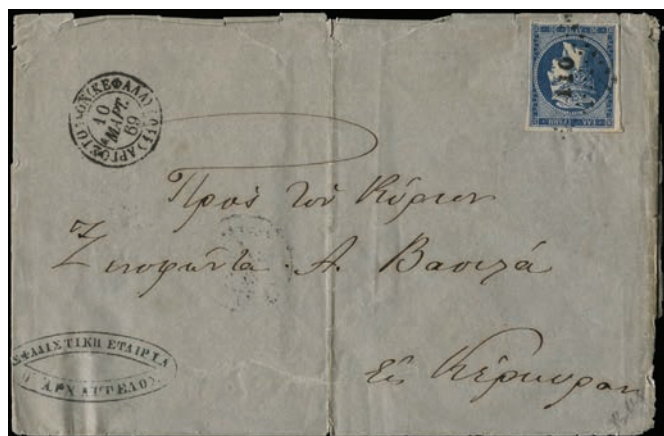 ΑΡΓΟΣΤΟΛΙΟΝ (ΚΕΦΑΛΛ)
10
ΜΑΡΤ.
69
110
Πρὸς τὸν Κύριον
Α. Βασιλᾶ
Εἰς Κέρκυραν
ΑΣΦΑΛΙΣΤΙΚΗ ΕΤΑΙΡΙΑ
Ο ΑΡΧΑΓΓΕΛΟΣ